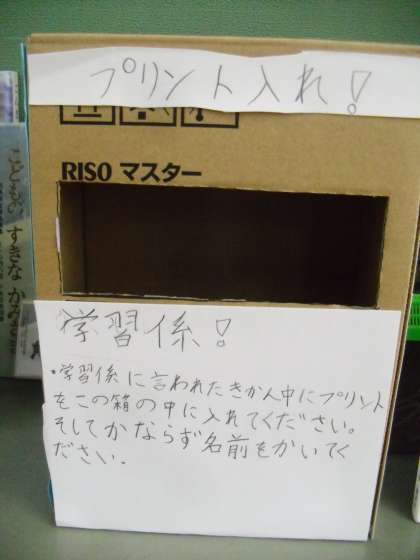 プリント入れ!
RISO マスター
こどもの すきな かみさま
学習係!
・学習係に言われたきかん中にプリント
をこの箱の中に入れてください。
そしてかならず名前をかいてく
ださい.